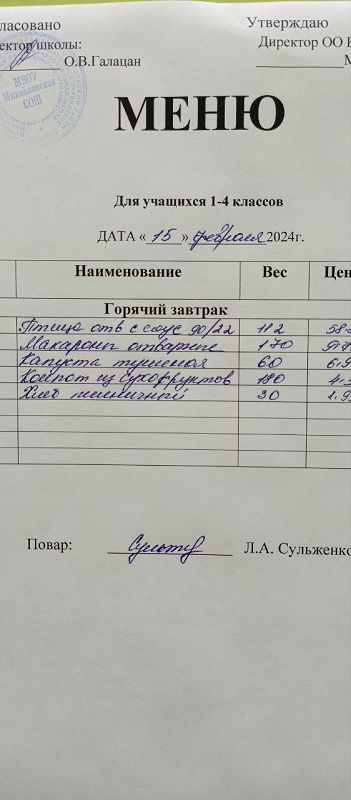 гласовано Утверждаю
ектор школы: Директор ОО
О.В.Галацан
МБОУ
Михайловская
СОШ
МЕНЮ
Для учащихся 1-4 классов
ДАТА « 15 » февраля 2024г.
Наименование Вес Цен
Горячий завтрак
Птица отв с соус 90/22 112 58
Макароны отварные 170
Капуста тушеная 60 6.9
Компот из сухофруктов 180
Хлеб пшеничный 30 1.9
Повар: Л.А. Сульженко